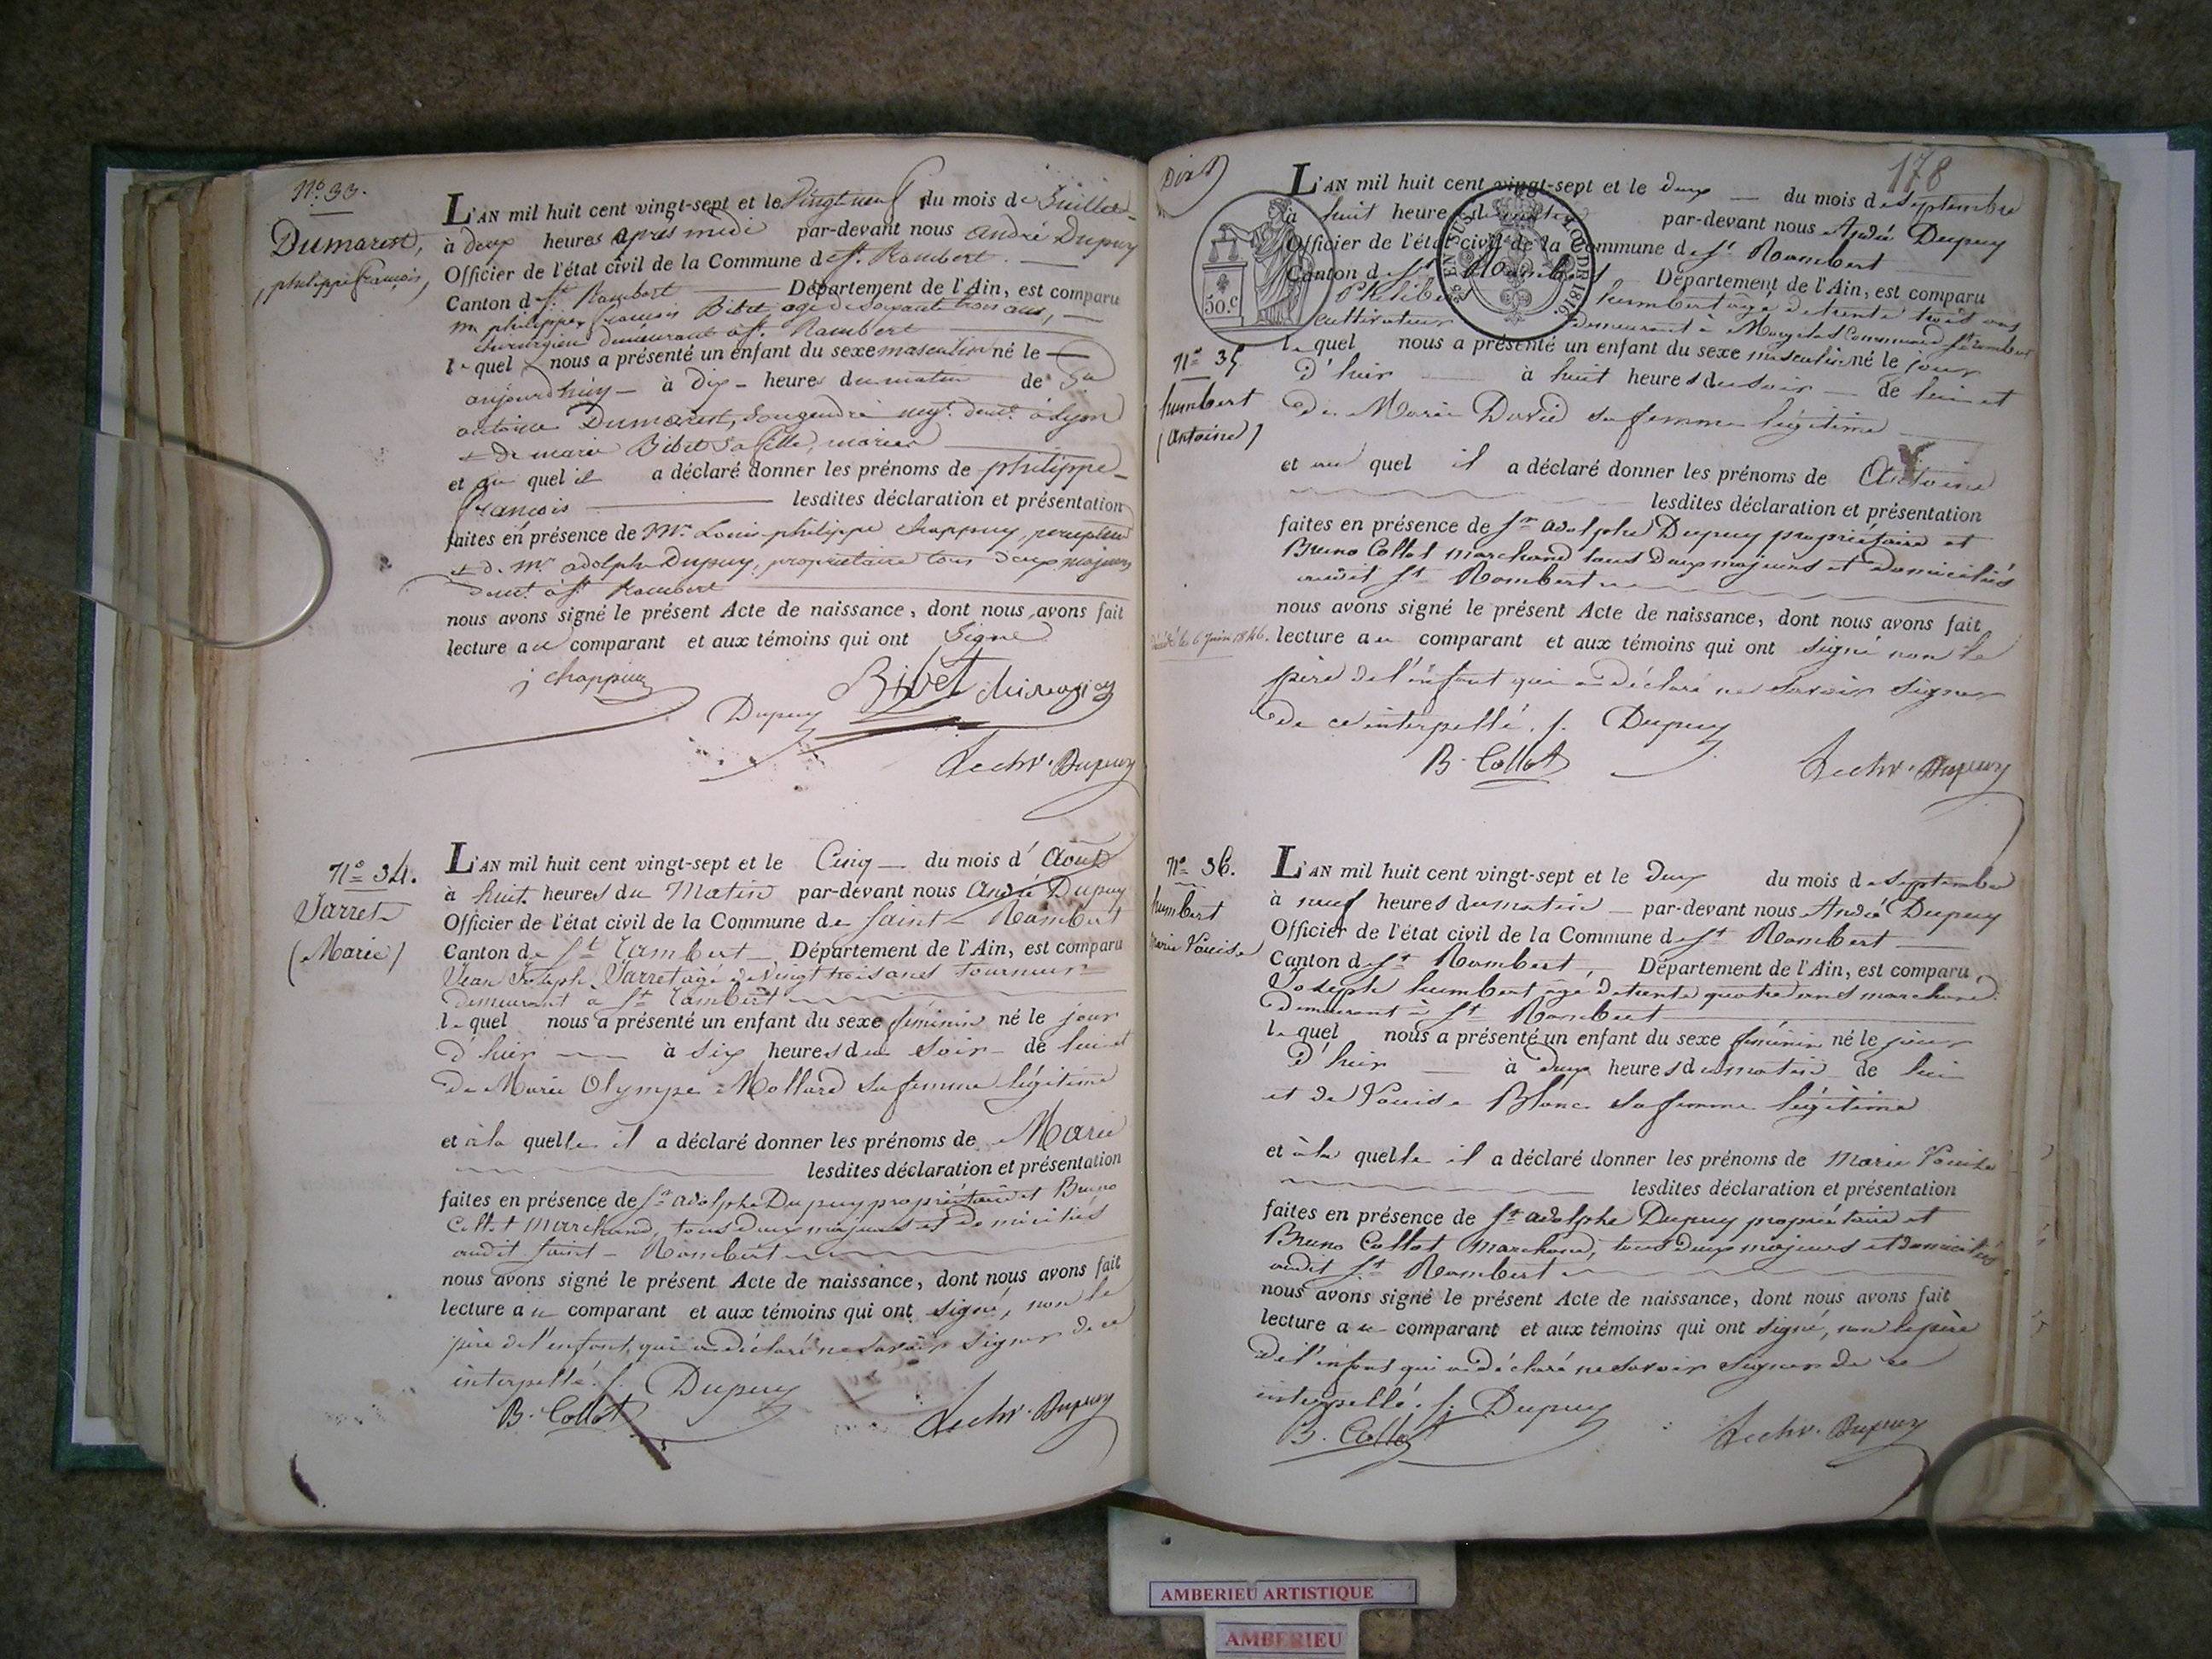 N.º 33.
Dumarest,
(philippe françois)
L'AN mil huit cent vingt-sept et le vingt neuf du mois de Juillet
à deux heures après midi par-devant nous andré Dupuy
Officier de l'état civil de la Commune de St. Rambert.
Canton de St. Rambert Département de l'Ain, est comparu
mr philippe françois Bibet agé de soixante trois ans,
chirurgien demeurant à St. Rambert
lequel nous a présenté un enfant du sexe masculin né le
aujourd'huy à dix heures du matin de Sr
antoine Dumarest, son gendre neg.t dem.t à Lyon
et de marie Bibet sa fille, mariés
et au quel il a déclaré donner les prénoms de philippe
françois lesdites déclaration et présentation
faites en présence de Mr. Louis philippe chappuy, percepteur
et de Mr adolphe Dupuy, propriétaire tous deux majeurs
demt. à St. Rambert
nous avons signé le présent Acte de naissance, dont nous avons fait
lecture au comparant et aux témoins qui ont signé
j chappuy
Bibet chirurgien
Dupuy
Dupuy
N.º 34.
Jarret
(Marie)
L'AN mil huit cent vingt-sept et le Cinq du mois d'Aout
à huit heures du Matin par-devant nous André Dupuy
Officier de l'état civil de la Commune de Saint Rambert
Canton de St. Rambert Département de l'Ain, est comparu
Jean Joseph Jarret agé de vingt trois ans Tourneur
demeurant à St. Rambert
lequel nous a présenté un enfant du sexe féminin né le jour
d'hier à six heures du soir de lui et
de Marie Olympe Mollard sa femme légitime
et à la quelle il a déclaré donner les prénoms de Marie
lesdites déclaration et présentation
faites en présence de Sr. adolphe Dupuy propriétaire et Bruno
Collot marchand, tous deux majeurs et domiciliés
audit Saint Rambert
nous avons signé le présent Acte de naissance, dont nous avons fait
lecture au comparant et aux témoins qui ont signé, non le
père de l'enfant, qui a déclaré ne savoir signer de ce
interpellé. /. Dupuy
B. Collot
Dupuy
178
50 C
EN SUS
1816
N.º 35
humbert
(antoine)
décédé le 6 juin 1846.
L'AN mil huit cent vingt-sept et le deux du mois de septembre
à huit heures du matin par-devant nous André Dupuy
Officier de l'état civil de la Commune de St. Rambert
Canton de St. Rambert Département de l'Ain, est comparu
Philibert humbert âgé de trente trois ans
cultivateur demeurant à Morgelas Commune de St. rambert
lequel nous a présenté un enfant du sexe masculin né le jour
d'hier à huit heures du soir de lui et
de Marie David sa femme légitime
et au quel il a déclaré donner les prénoms de Antoine
lesdites déclaration et présentation
faites en présence de Sr. adolphe Dupuy propriétaire et
Bruno Collot marchand tous deux majeurs et domiciliés
audit St. Rambert
nous avons signé le présent Acte de naissance, dont nous avons fait
lecture au comparant et aux témoins qui ont signé non le
père de l'enfant qui a déclaré ne savoir signer
de ce interpellé. /. Dupuy
B. Collot
Dupuy
N.º 36.
humbert
marie Louise
L'AN mil huit cent vingt-sept et le deux du mois de septembre
à neuf heures du matin par-devant nous André Dupuy
Officier de l'état civil de la Commune de St. Rambert
Canton de St. Rambert Département de l'Ain, est comparu
Joseph humbert âgé de trente quatre ans marchand
demeurant à St. Rambert
lequel nous a présenté un enfant du sexe féminin né le jour
d'hier à deux heures du matin de lui
et de Louise Blanc sa femme légitime
et à la quelle il a déclaré donner les prénoms de Marie Louise
lesdites déclaration et présentation
faites en présence de Sr. adolphe Dupuy propriétaire et
Bruno Collot marchand, tous deux majeurs et domiciliés
audit St. Rambert
nous avons signé le présent Acte de naissance, dont nous avons fait
lecture au comparant et aux témoins qui ont signé, non le père
de l'enfant qui a déclaré ne savoir signer de ce
interpellé. /. Dupuy
B. Collot
Dupuy
AMBERIEU ARTISTIQUE
AMBERIEU